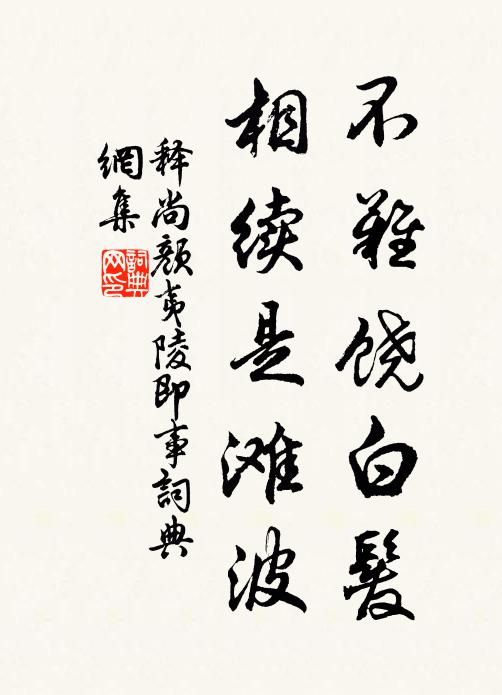 不難饶白髮
相续是滩波
释尚颜夷陵即事詞典
網集
詞典
网印